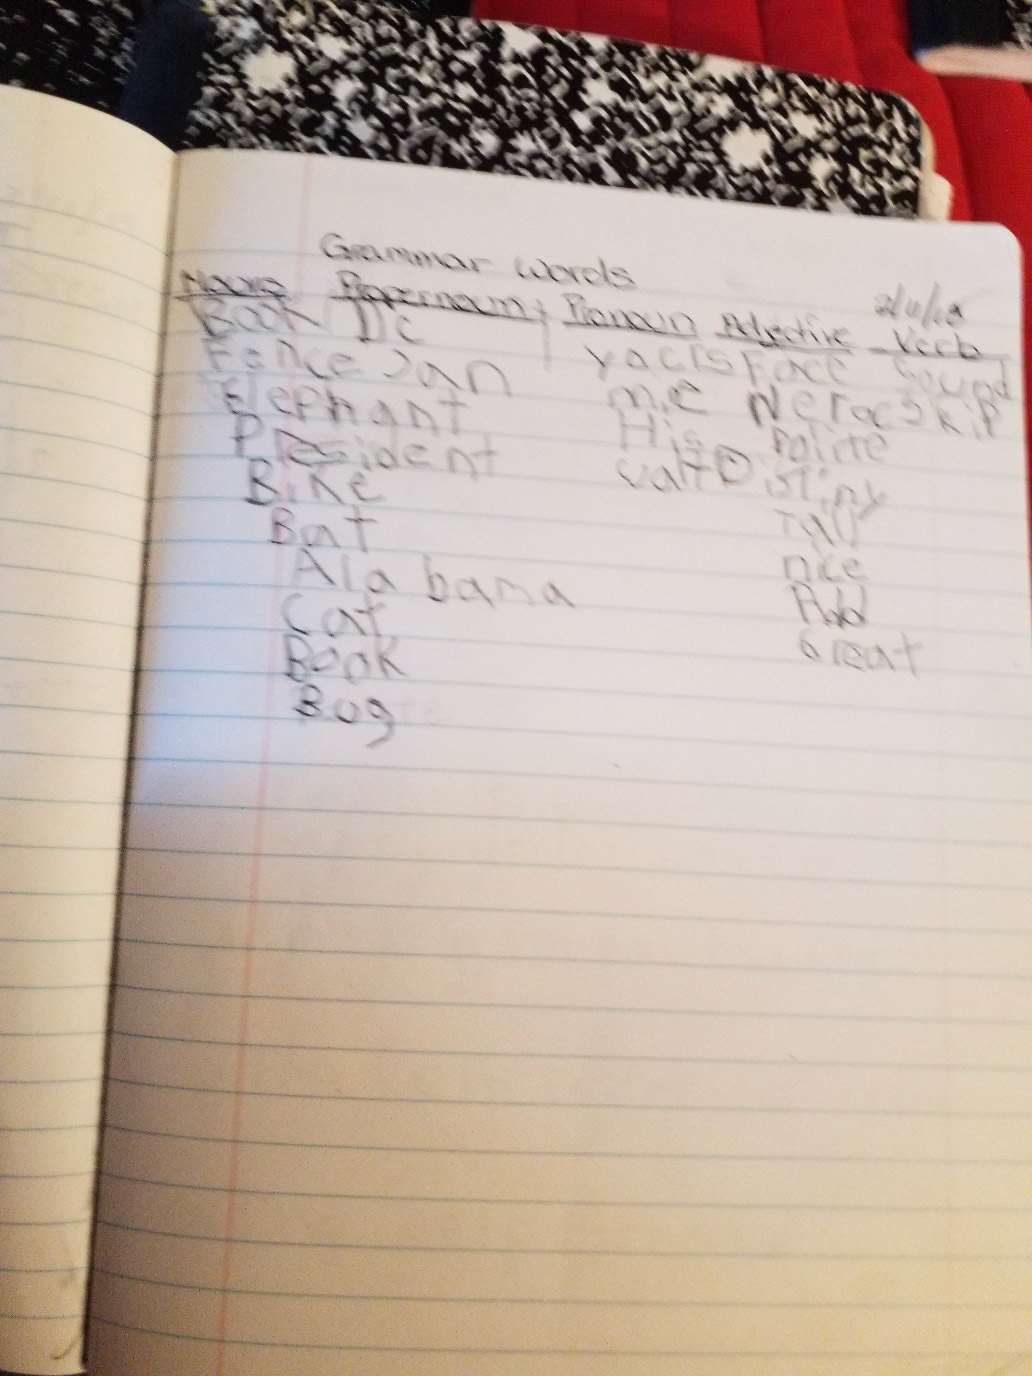 Grammar Words
Nouns Propernoun Pronoun Adjective Verb
Book Dc
Fence Jan Face Sound
Elephant me Skip
President His Polite
Bike
Bat Tall
Ala bama nice
Cat Add
Book Great
Bug